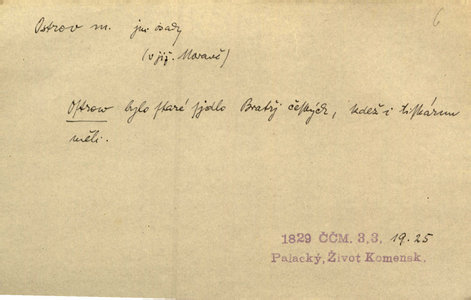 6
Ostrov m. jm. osady
(v již. Moravě)
Oſtrow bylo ſtaré ſjdlo Bratřj čeſkých, kdež i tiſkárnu
měli.
1829 ČČM. 3,3. 19.25
Palacký, Život Komensk.